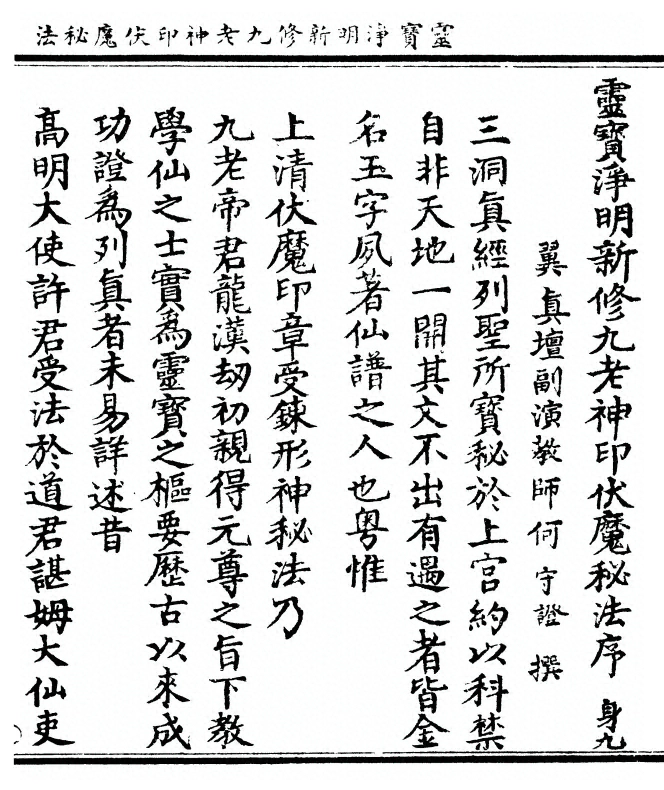 靈寶淨明新修九老神印伏魔秘法
靈寶淨明新修九老神印伏魔秘法序 身九
翼真壇副演教師何守證撰
三洞真經列聖所寶秘於上宮約以科禁
自非天地一開其文不出有遇之者皆金
名玉字夙著仙譜之人也粵惟
上清伏魔印章受鍊形神秘法乃
九老帝君龍漢劫初親得元尊之旨下教
學仙之士實為靈寶之樞要歷古以來成
功證為列真者未易詳述昔
高明大使許君受法於道君諶姆大仙吏